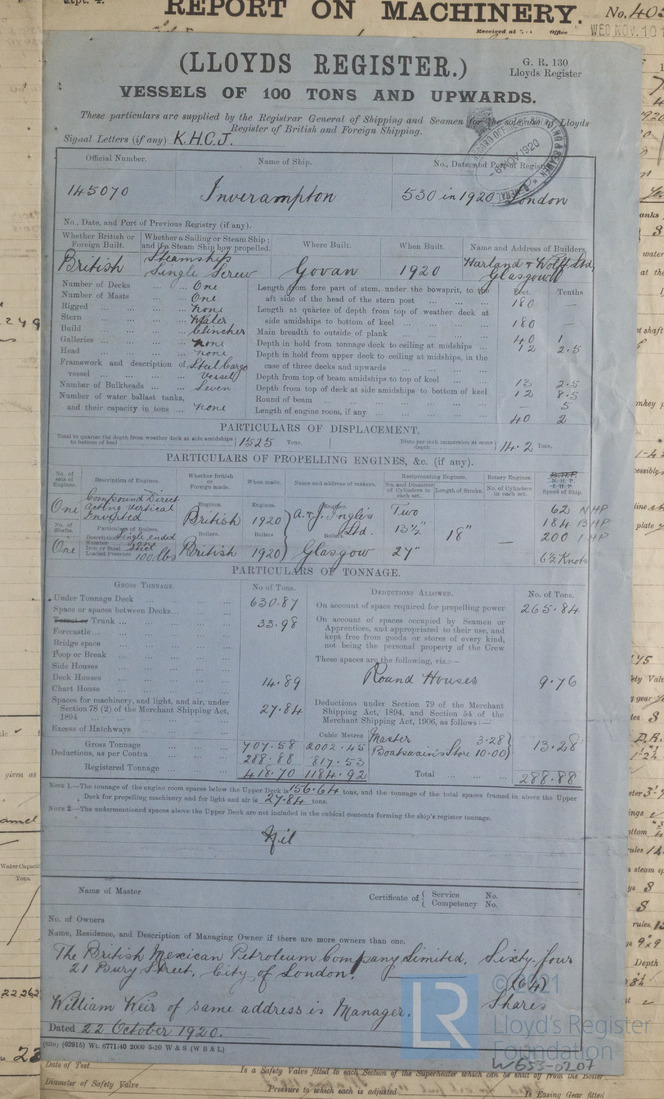 REPORT ON MACHINERY. No. 403
Received at Office WED. NOV. 10 1
(LLOYDS REGISTER.)
G. R. 130
Lloyds Register
VESSELS OF 100 TONS AND UPWARDS.
These particulars are supplied by the Registrar General of Shipping and Seamen for the sole use of Lloyds
Register of British and Foreign Shipping.
Signal Letters (if any) K.H.C.J.
Official Number. Name of Ship. No., Date, and Port of Registry
145070 Inverampton 530 in 1920 London
No., Date, and Port of Previous Registry (if any).
Whether British or Foreign Built. Whether a Sailing or Steam Ship; and if a Steam Ship how propelled. Where Built. When Built. Name and Address of Builders.
British Steamship Single Screw Govan 1920 Harland & Wolff Ltd, Glasgow
Number of Decks One
Number of Masts One
Rigged None
Stern
Build Clincher
Galleries None
Head None
Framework and description of vessel Steel Cargo Vessel
Number of Bulkheads Seven
Number of water ballast tanks, and their capacity in tons None
Feet. Tenths
Length from fore part of stem, under the bowsprit, to the aft side of the head of the stern post 180 —
Length at quarter of depth from top of weather deck at side amidships to bottom of keel 180 —
Main breadth to outside of plank 40 1
Depth in hold from tonnage deck to ceiling at midships 12 2.5
Depth in hold from upper deck to ceiling amidships, in the case of three decks and upwards
Depth from top of beam amidships to top of keel 13 2.5
Depth from top of deck at side amidships to bottom of keel 12 8.5
Round of beam — 5
Length of engine room, if any 40 2
PARTICULARS OF DISPLACEMENT.
Total to quarter the depth from weather deck at side amidships to bottom of keel 1525 Tons.
Ditto per inch immersion at same depth 14.2 Tons.
PARTICULARS OF PROPELLING ENGINES, &c. (if any).
No. of sets of Engines. Description of Engines. Whether British or Foreign made. When made. Name and address of makers. Reciprocating Engines. Rotary Engines.
No. and Diameter of Cylinders in each set. Length of Stroke. No. of Cylinders in each set. Speed of Ship.
One Compound Direct Acting Vertical Inverted
Engines. British Engines. 1920 A. & J. Inglis Ltd. Glasgow
Two 13½" 27" 18" —
62 NHP
184 BHP
200 IHP
6½ Knots
No. of Shafts. Particulars of Boilers.
One Single ended
Number One
Iron or Steel Steel
Loaded Pressure 100 lbs
Boilers British Boilers 1920
PARTICULARS OF TONNAGE.
GROSS TONNAGE. No. of Tons.
Under Tonnage Deck 630.87
Space or spaces between Decks
Trunk 33.98
Forecastle
Bridge space
Poop or Break
Side Houses
Deck Houses 14.89
Chart House
Spaces for machinery, and light, and air, under Section 78 (2) of the Merchant Shipping Act, 1894 27.84
Excess of Hatchways
Cubic Metres
Gross Tonnage 707.58 2002.45
Deductions, as per Contra 288.88 817.53
Registered Tonnage 418.70 1184.92
DEDUCTIONS ALLOWED. No. of Tons.
On account of space required for propelling power 265.84
On account of spaces occupied by Seamen or Apprentices, and appropriated to their use, and kept free from goods or stores of every kind, not being the personal property of the Crew
These spaces are the following, viz.:—
Round Houses 9.76
Deductions under Section 79 of the Merchant Shipping Act, 1894, and Section 54 of the Merchant Shipping Act, 1906, as follows:—
Master 3.28
Boatswain's Store 10.00
13.28
Total 288.88
NOTE 1.—The tonnage of the engine room spaces below the Upper Deck is 156.64 tons, and the tonnage of the total spaces framed in above the Upper
Deck for propelling machinery and for light and air is 27.84 tons.
NOTE 2.—The undermentioned spaces above the Upper Deck are not included in the cubical contents forming the ship's register tonnage.
Nil
Name of Master Certificate of Service No. Competency No.
No. of Owners
Name, Residence, and Description of Managing Owner if there are more owners than one.
The British Mexican Petroleum Company Limited, Sixty four
21 Bury Street, City of London. (64)
William Weir of same address is Manager. Shares
Dated 22 October 1920.
(02915) Wt. 6771/40 2000 5-20 W & S (W B & L)
© 2021
LR Lloyd's Register
Foundation
W653-0207
Date of Test
Is a Safety Valve fitted to each Section of the Superheater which can be shut off from the Boiler
Diameter of Safety Valve Pressure to which each is adjusted Is Easing Gear fitted